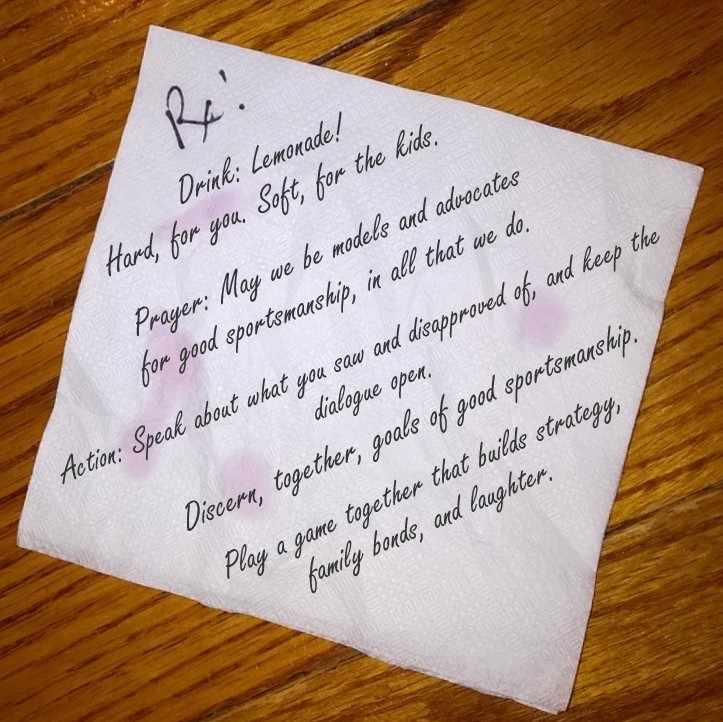 Rx:
Drink: Lemonade!
Hard, for you. Soft, for the kids.
Prayer: May we be models and advocates
for good sportsmanship, in all that we do.
Action: Speak about what you saw and disapproved of, and keep the
dialogue open.
Discern, together, goals of good sportsmanship.
Play a game together that builds strategy,
family bonds, and laughter.